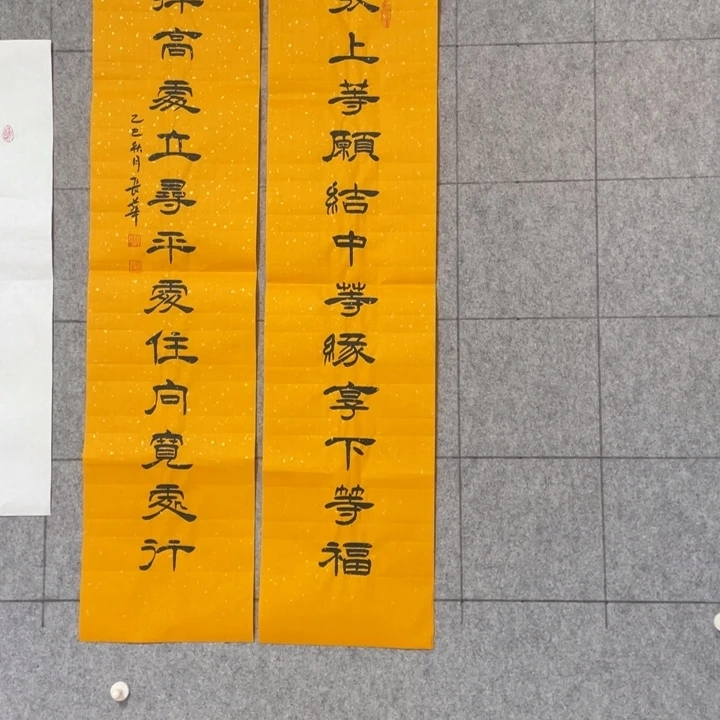 上等願結中等緣享下等福
高處立尋平處住向寬處行
乙巳秋月長華